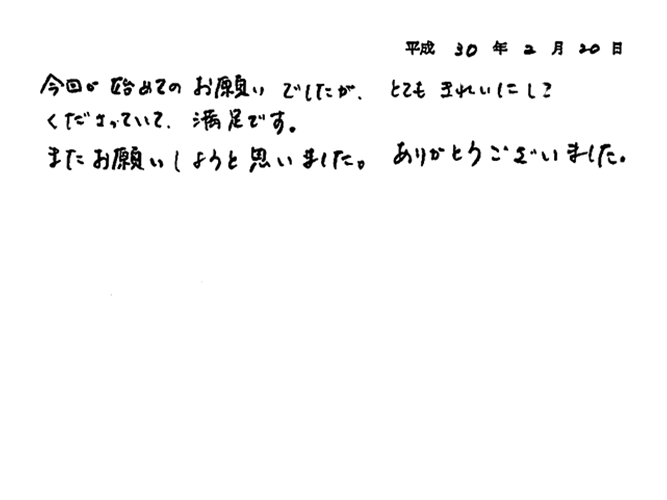 平成 30 年 2 月 20 日
今回が始めてのお願いでしたが、とてもきれいにして
くださっていて、満足です。
またお願いしようと思いました。ありがとうございました。